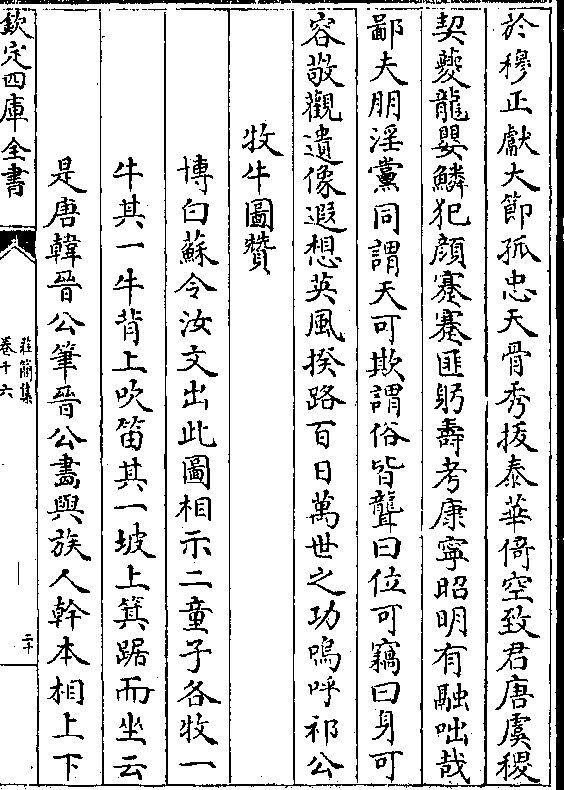 於穆正獻大節孤忠天骨秀拔泰華倚空致君唐虞稷
契夔龍嬰鱗犯顔蹇蹇匪躬壽考康寧昭明有融咄哉
鄙夫朋淫黨同謂天可欺謂俗皆聾曰位可竊曰身可
容敬觀遺像遐想英風揆路百日萬世之功嗚呼祁公
牧牛圖贊
博白蘇令汝文出此圖相示二童子各牧一
牛其一牛背上吹笛其一坡上箕踞而坐云
是唐韓晉公筆晉公畫與族人幹本相上下
欽定四庫全書
莊簡集
卷十六
二十